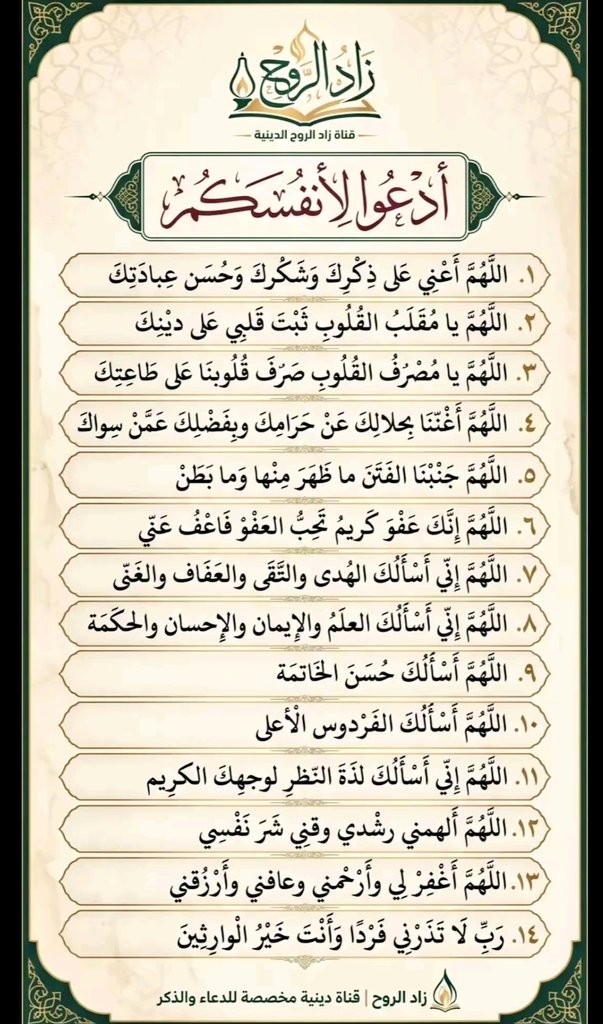 زَادُ الرُّوحِ
قناة زاد الروح الدينية
أدْعُوا لِأنفُسَكُمْ
١. اللَّهُمَّ أَعْنِي عَلى ذِكْرِكَ وَشَكْركَ وَحُسَن عِبادَتِكَ
٢. اللَّهُمَّ يا مُقَلَبُ القُلُوبِ ثَبْتَ قَلبِي عَلى ديْنِكَ
٣. اللَّهُمَّ يا مُصْرُفُ القُلُوبِ صَرَفَ قُلُوبنَا عَلى طَاعِتِكَ
٤. اللَّهُمَّ أَغْنّنَا بِحلالِكَ عَنْ حَرَامِكَ وبِفَضْلِكَ عَمَّنْ سِواكَ
٥. اللَّهُمَّ جَنْبْنَا الفَتَنَ ما ظَهَرَ مِنْها وَما بَطَنْ
٦. اللَّهُمَّ إِنَّكَ عَفْوَ كَريمُ تَحِبُّ العَفْوْ فَاعْفُ عَنّي
٧. اللَّهُمَّ إِنّي أَسْأَلُكَ الهُدى والتَّقَى والعَفَاف والغَنّى
٨. اللَّهُمَّ إِنّي أَسْأَلُكَ العلَمُ والإِيمان والإِحسان والحكَمَة
٩. اللَّهُمَّ أَسْأَلُكَ حُسَنَ الخَاتمَة
١٠. اللَّهُمَّ أَسْأَلُكَ الفَرْدوس الْأعلى
١١. اللَّهُمَّ إِنّي أَسْأَلُكَ لذَةَ النّظرِ لوجهِكَ الكرِيم
١٢. اللَّهُمَّ أَلهمني رشْدي وقنِي شَرَ نَفْسِي
١٣. اللَّهُمَّ أَغْفِرْ لِي وأَرْحْمني وعافني وأَرْزُقني
١٤. رَبِّ لَا تَذَرْنِي فَرْدًا وَأَنْتَ خَيْرُ الْوارِثِينَ
زاد الروح | قناة دينية مخصصة للدعاء والذكر